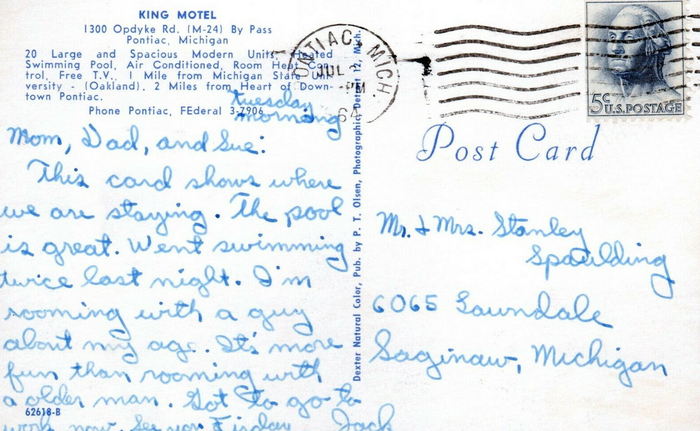 KING MOTEL
1300 Opdyke Rd. (M-24) By Pass
Pontiac, Michigan
20 Large and Spacious Modern Units Heated
Swimming Pool, Air Conditioned, Room Heat Con-
trol, Free T.V. 1 Mile from Michigan State
versity - (Oakland). 2 Miles from Heart of Down-
town Pontiac.
Phone Pontiac, FEderal 3-7906
Tuesday
morning
Mom, Dad, and Sue:
This card shows where
we are staying. The pool
is great. Went swimming
twice last night. I'm
rooming with a guy
about my age. It's more
fun than rooming with
a older man. Got to go to
work now. See you Friday Jack
62618-B
Dexter Natural Color, Pub. by P. T. Olsen, Photographic, Detroit 12, Mich.
PONTIAC, MICH
JUL
PM
5¢ U.S. POSTAGE
Post Card
Mr. & Mrs. Stanley
Spaulding
6065 Lawndale
Saginaw, Michigan